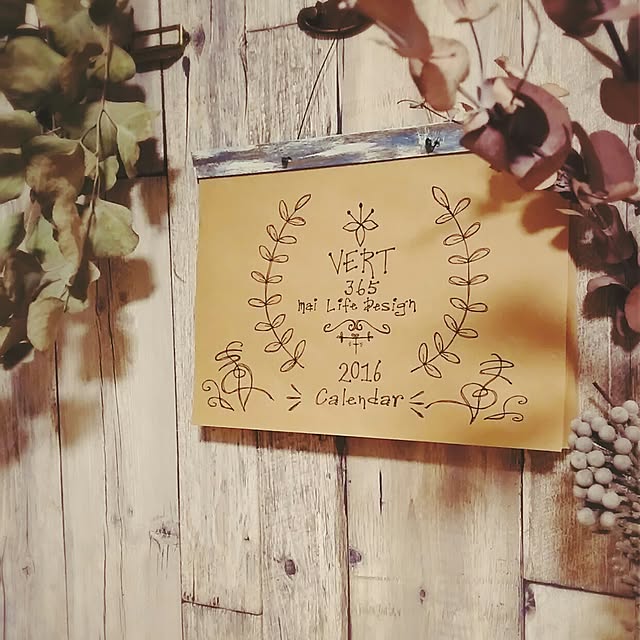 VERT
365
mai Life Design
2016
Calendar